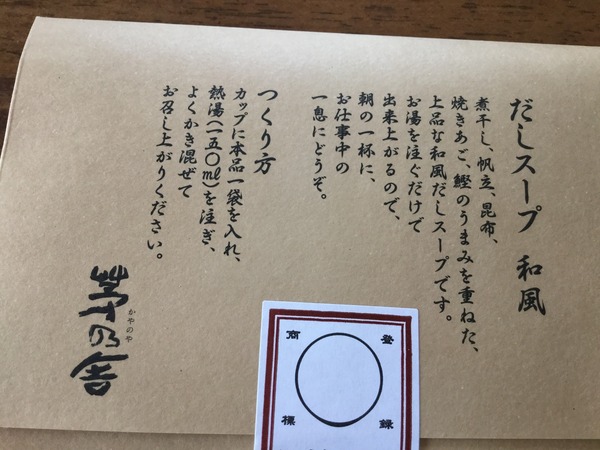 だしスープ 和風
煮干し、帆立、昆布、
焼きあご、鰹のうまみを重ねた、
上品な和風だしスープです。
お湯を注ぐだけで
出来上がるので、
朝の一杯に、
お仕事中の
一息にどうぞ。
つくり方
カップに本品一袋を入れ、
熱湯(一五〇㎖)を注ぎ、
よくかき混ぜて
お召し上がりください。
かやのや
茅乃舎
登録
商標